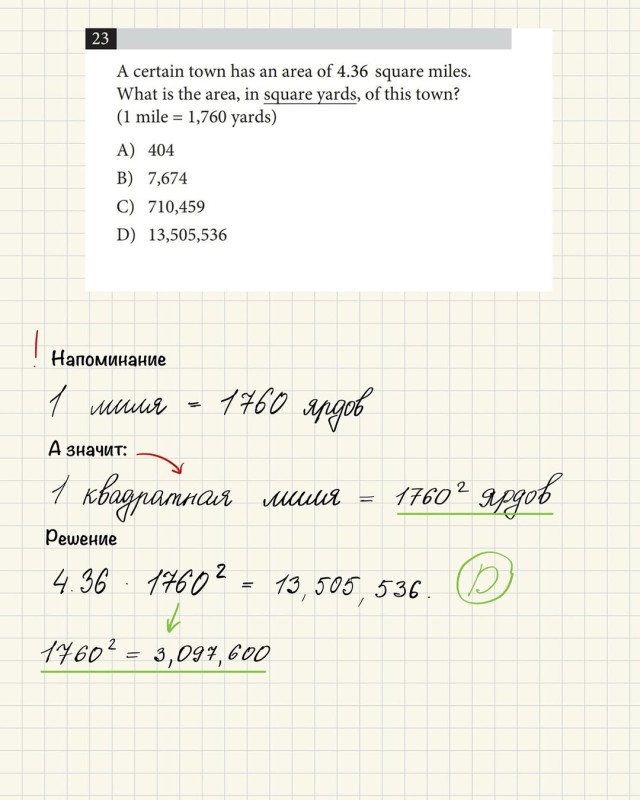 23
A certain town has an area of 4.36 square miles.
What is the area, in square yards, of this town?
(1 mile = 1,760 yards)
A) 404
B) 7,674
C) 710,459
D) 13,505,536
! Напоминание
1 миля = 1760 ярдов
А значит:
1 квадратная миля = 1760² ярдов
Решение
4.36 · 1760² = 13,505,536. D
1760² = 3,097,600